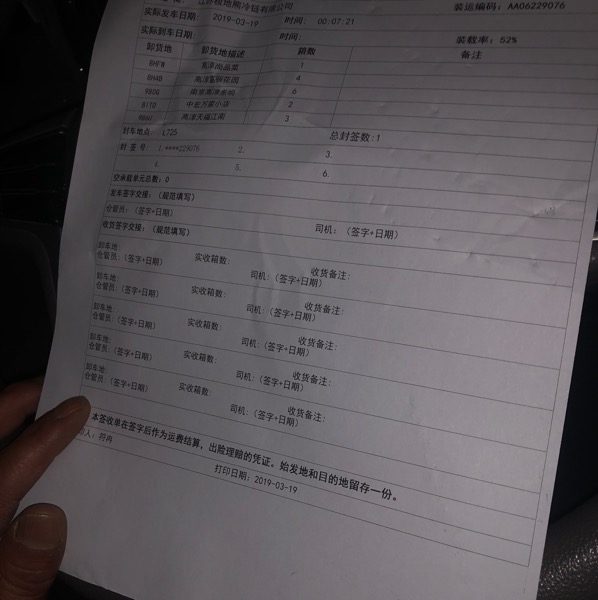 极地熊冷链有限公司 装运编码: AA06229076
实际发车日期 2019-03-19 时间: 00:07:21
实际到车日期: 时间: 装载率: 52%
卸货地 卸货地描述 箱数 备注
8HFW 尚品菜 1
8HAB 高淳 花园 4
9800 南京高淳 6
81T0 中宏万家小店 2
高淳天福江南 3
封车地点: 1,725 总封签数:1
封 签 号: 1.****229076 2. 3.
4. 5. 6.
空承载单元总数: 0
发车签字交接: (规范填写)
仓管员: (签字+日期) 司机: (签字+日期)
收货签字交接: (规范填写)
卸车地: 实收箱数: 收货备注:
仓管员: (签字+日期) 司机: (签字+日期)
卸车地: 实收箱数: 收货备注:
仓管员: (签字+日期) 司机: (签字+日期)
卸车地: 实收箱数: 收货备注:
仓管员: (签字+日期) 司机: (签字+日期)
卸车地: 实收箱数: 收货备注:
仓管员: (签字+日期) 司机: (签字+日期)
卸车地: 实收箱数: 收货备注:
仓管员: (签字+日期) 司机: (签字+日期)
本签收单在签字后作为运费结算, 出险理赔的凭证。始发地和目的地留存一份。
人: 符冉 打印日期: 2019-03-19